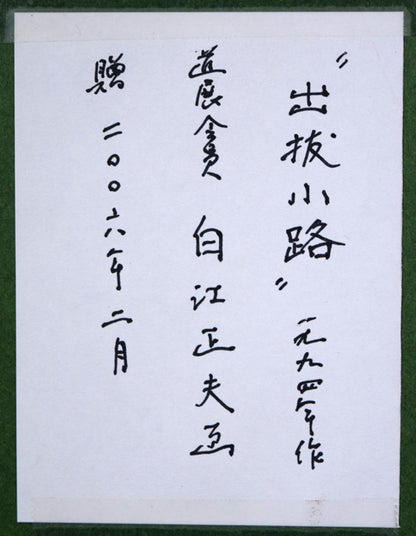 "出抜小路" 一九九四年作
道展会員 白江正夫画
贈 二〇〇六年二月